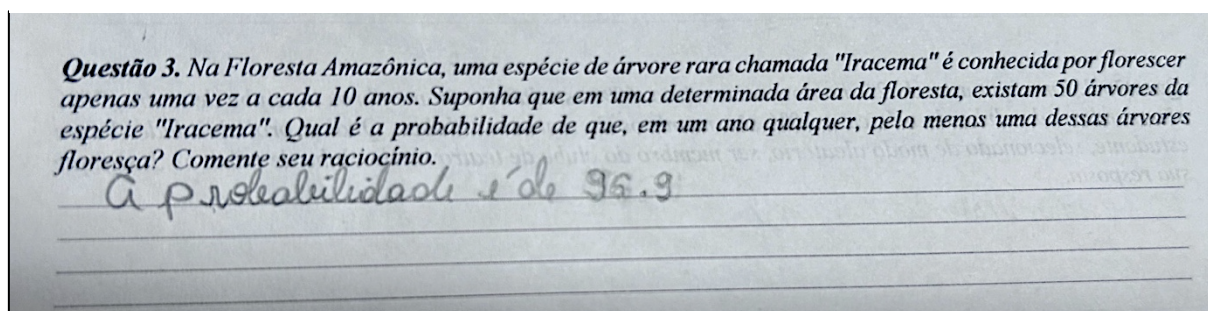 Questão 3. Na Floresta Amazônica, uma espécie de árvore rara chamada "Iracema" é conhecida por florescer
apenas uma vez a cada 10 anos. Suponha que em uma determinada área da floresta, existam 50 árvores da
espécie "Iracema". Qual é a probabilidade de que, em um ano qualquer, pelo menos uma dessas árvores
floresça? Comente seu raciocínio.
A probabilidade é de 95.9